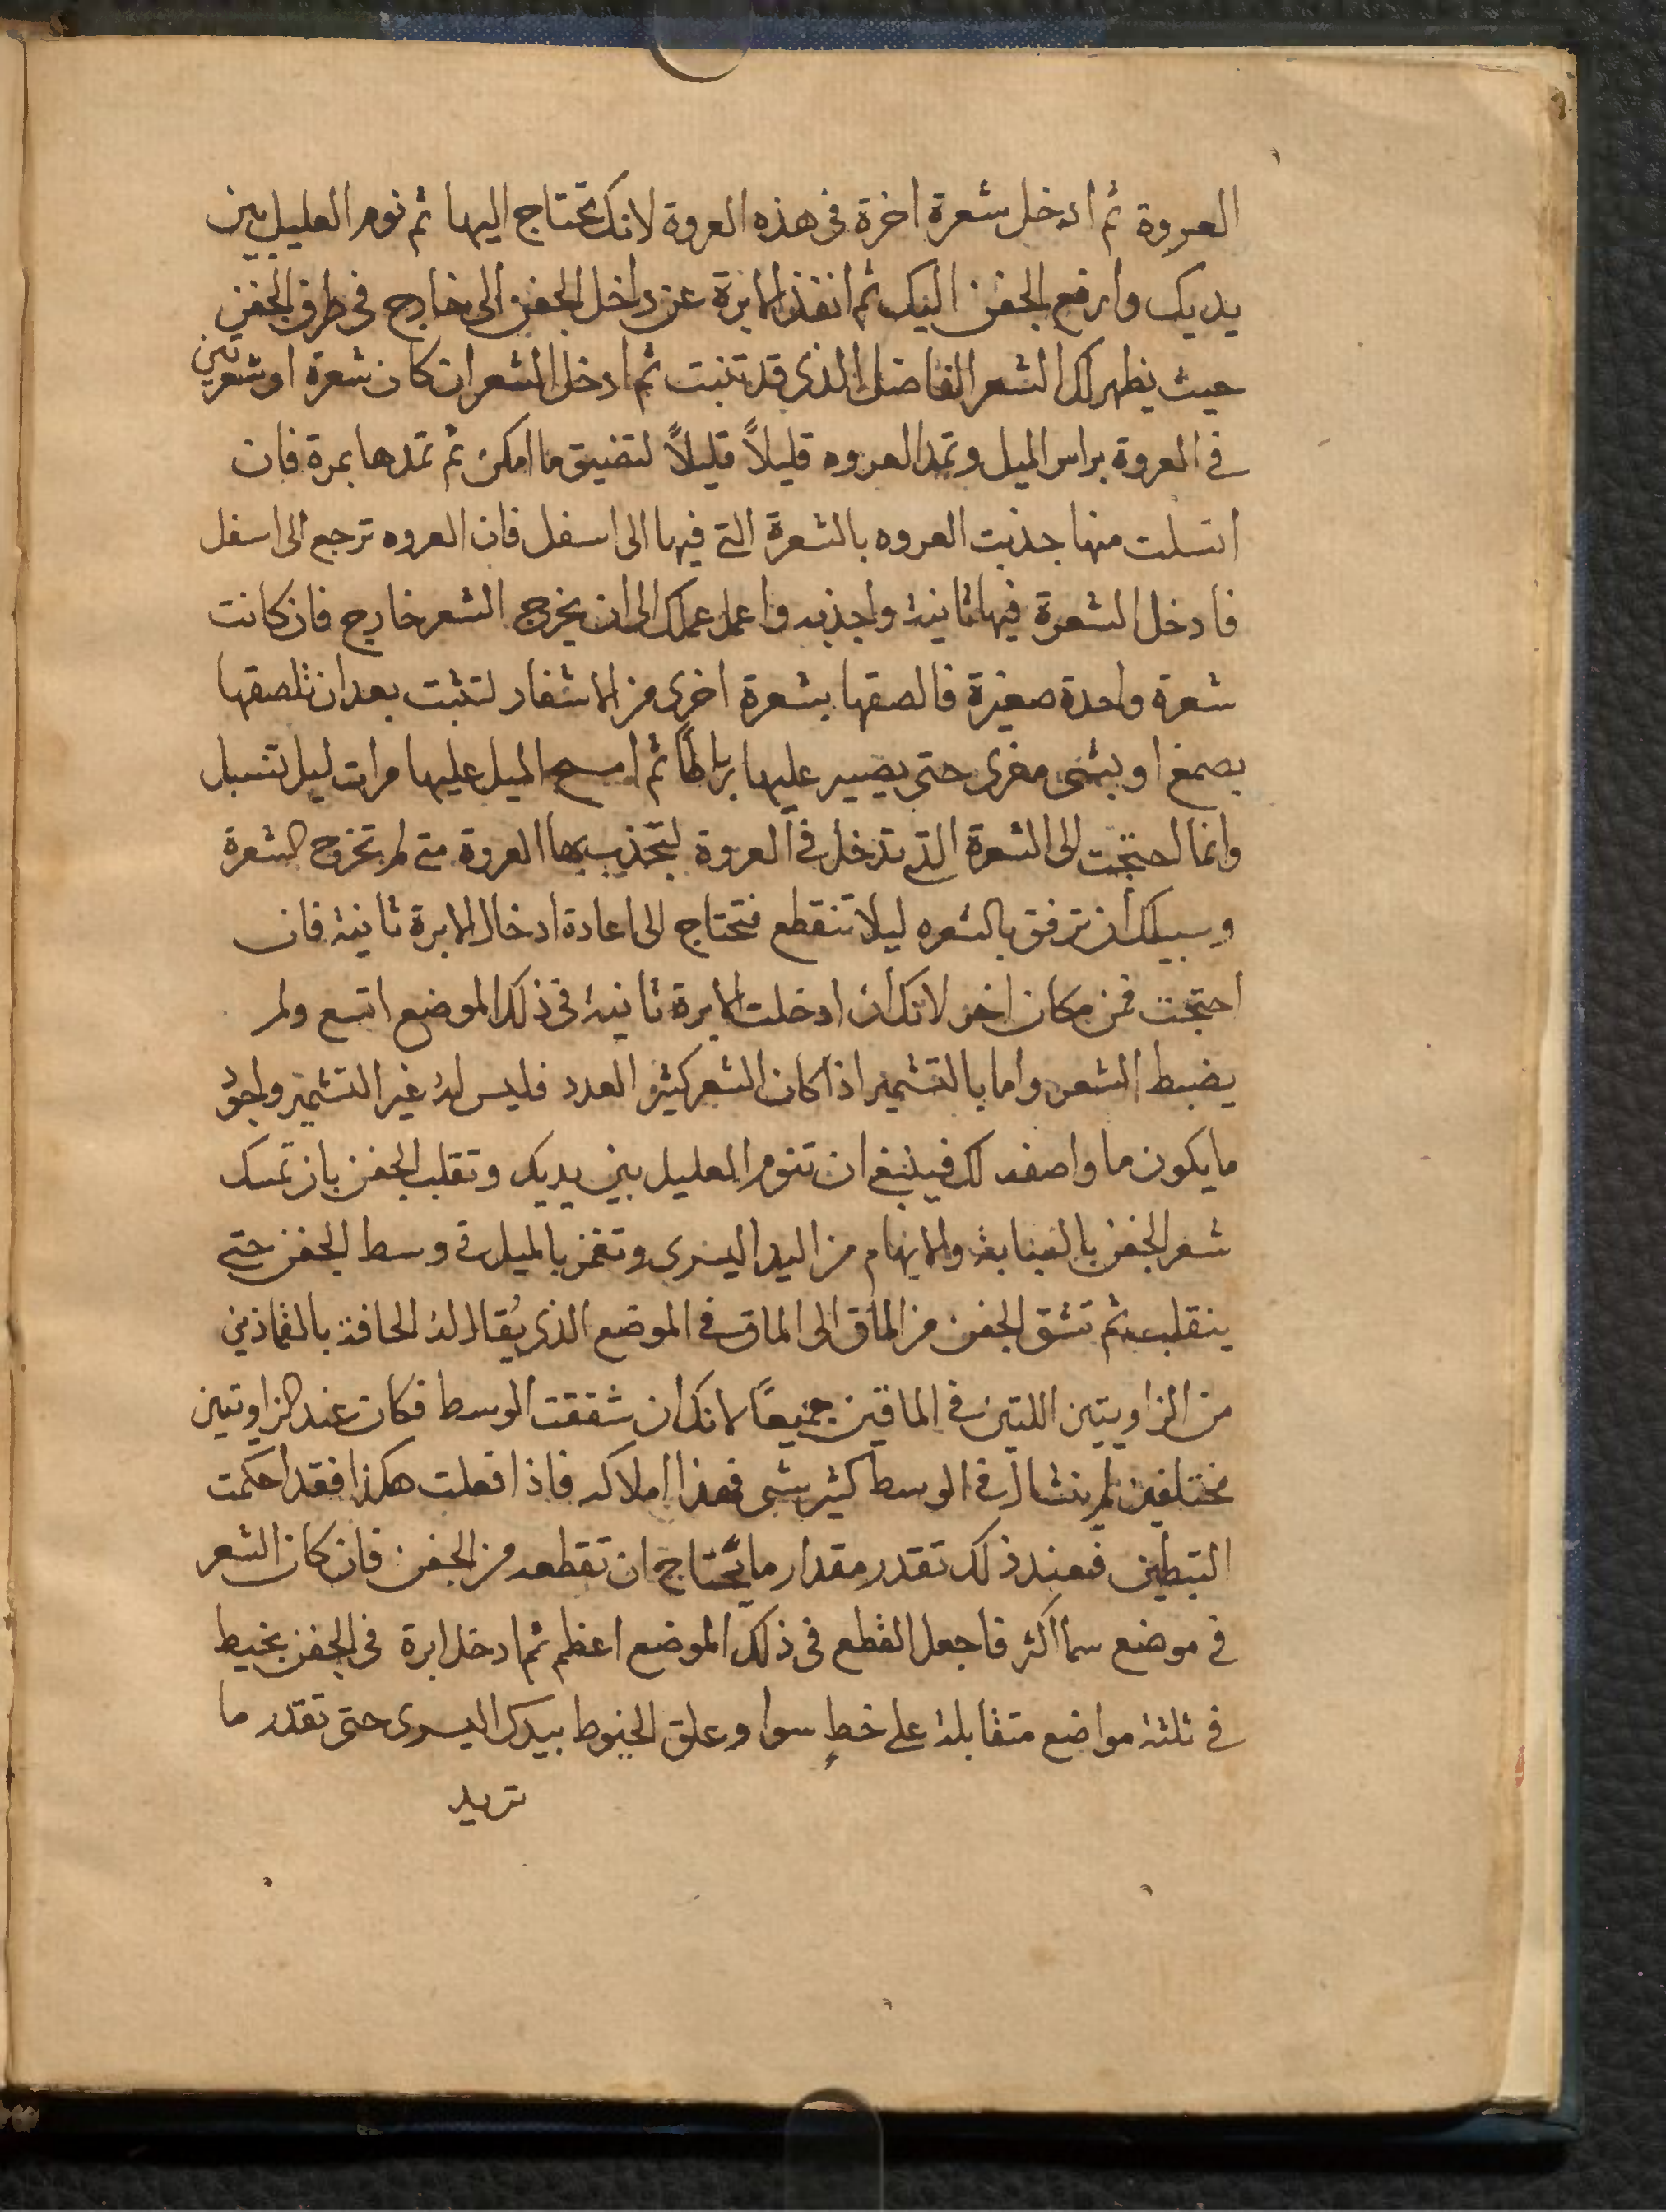 العروة ثم ادخل شعرة اخرة فى هذه العروة لانك تحتاج اليها ثم نوم العليل بين
يديك وارفع الجفن اليك ثم انفذ الابرة عن داخل الجفن الى خارج فى طرف الجفن
حيث يظهر لك الشعر الفاضل الذى قد تنبت ثم ادخل الشعر ان كان شعرة او شعرتين
في العروة براس الميل وتمد العروه قليلاً قليلاً لتضيق ما امكن ثم تمدها بمرة فان
انسلت منها جذبت العروه بالشعرة التي فيها الى اسفل فان العروه ترجع الى اسفل
فادخل الشعرة فيها ثانية واجذبه واعمل عملك الى ان يخرج الشعر خارج فان كانت
شعرة واحدة صغيرة فالصقها بشعرة اخرى من الاشفار لتثبت بعد ان تلصقها
بصمغ او بشى مغرى حتى يصير عليها رباطاً ثم امسح الميل عليها مرات ليل تنسبل
وانما احتجت الى الشعرة التي تدخل في العروة لتجذب بها العروة متى لم تخرج الشعرة
وسبيلك ان ترفق بالشعره ليلا تنقطع فتحتاج الى اعادة ادخال الابرة ثانية فان
احتجت فمن مكان اخر لانك ان ادخلت الابرة ثانية فى ذلك الموضع اتسع ولم
يضبط الشعر واما بالتشمير اذا كان الشعر كثير العدد فليس له غير التشمير واجود
ما يكون ما واصفه لك فينبغي ان تنوم العليل بين يديك وتقلب الجفن بان تمسك
شعر الجفن بالسبابة والابهام من اليد اليسرى وتغمز بالميل في وسط الجفن حتى
ينقلب ثم تشق الجفن من الماق الى الماق في الموضع الذى يُقال له الحافة بالقماذين
من الزاويتين اللتين في الماقين جميعاً لانك ان شققت الوسط فكان عند الزاويتين
مختلفين لم ينشال في الوسط كثير شى فهذا املاكه فاذا فعلت هكذا فقد احكمت
التبطين فعند ذلك تقدر مقدار ما يحتاج ان تقطعه من الجفن فان كان الشعر
في موضع سما اكثر فاجعل القطع فى ذلك الموضع اعظم ثم ادخل ابرة فى الجفن بخيط
في ثلثة مواضع متقابلة على خطٍ سوا وعلق الخيوط بيدك اليسرى حتى تقدر ما
تريد